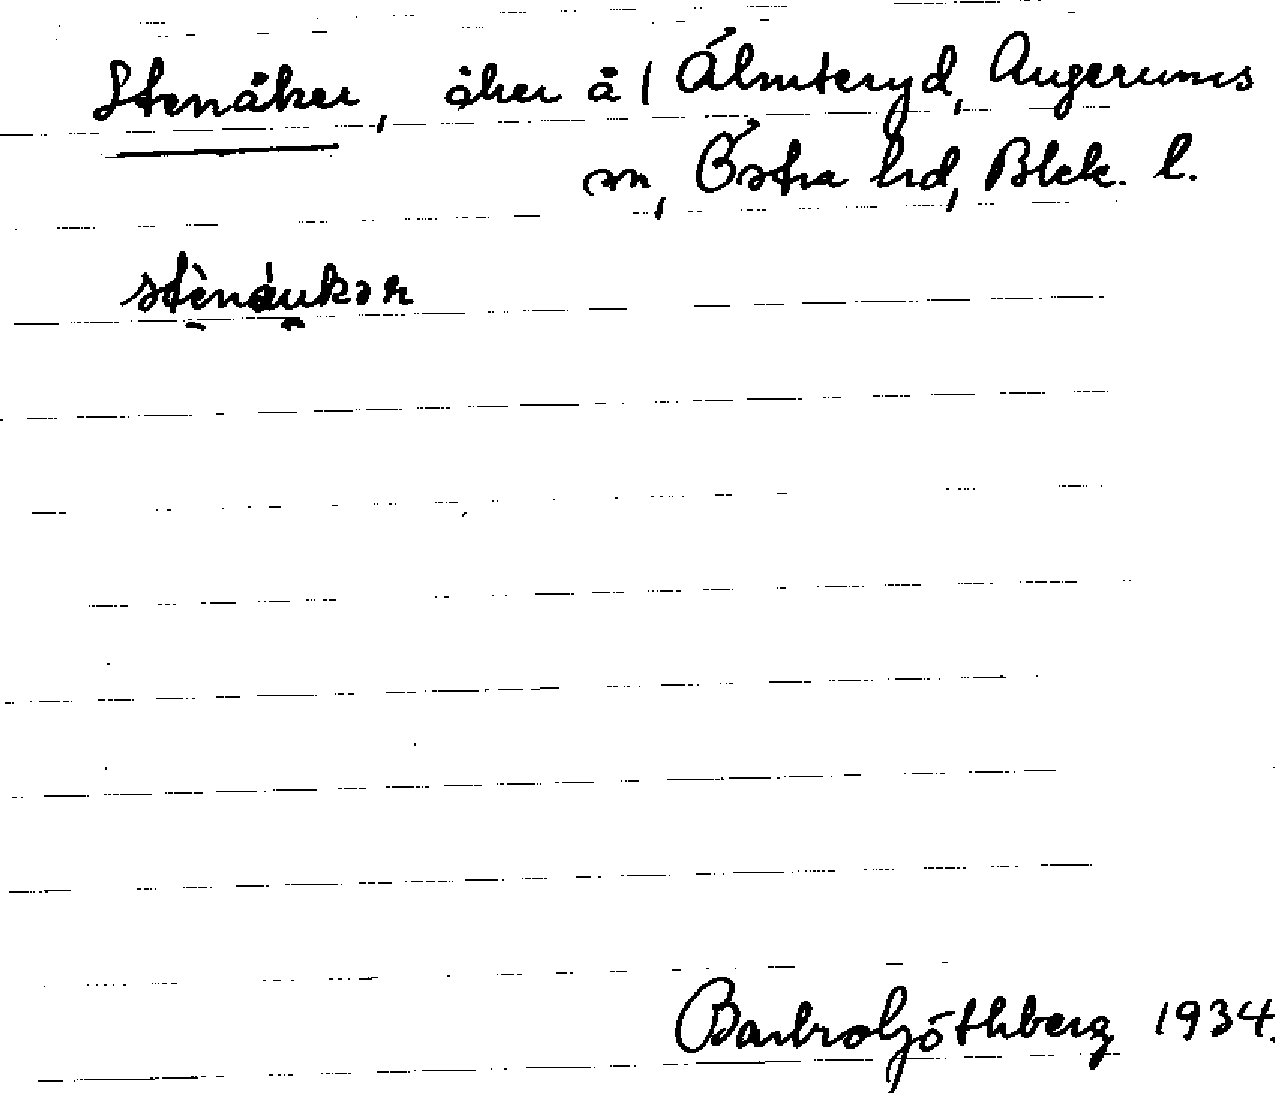 Stenåker, åker å 1 Älmteryd, Augerums
sn, Östra hd, Blek. l.
stènáukər
Barbro Göthberg 1934.